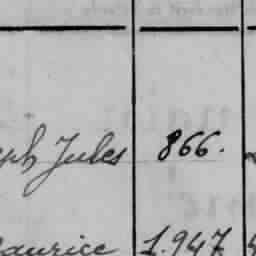 eph Jules 866.
aurice 1.947